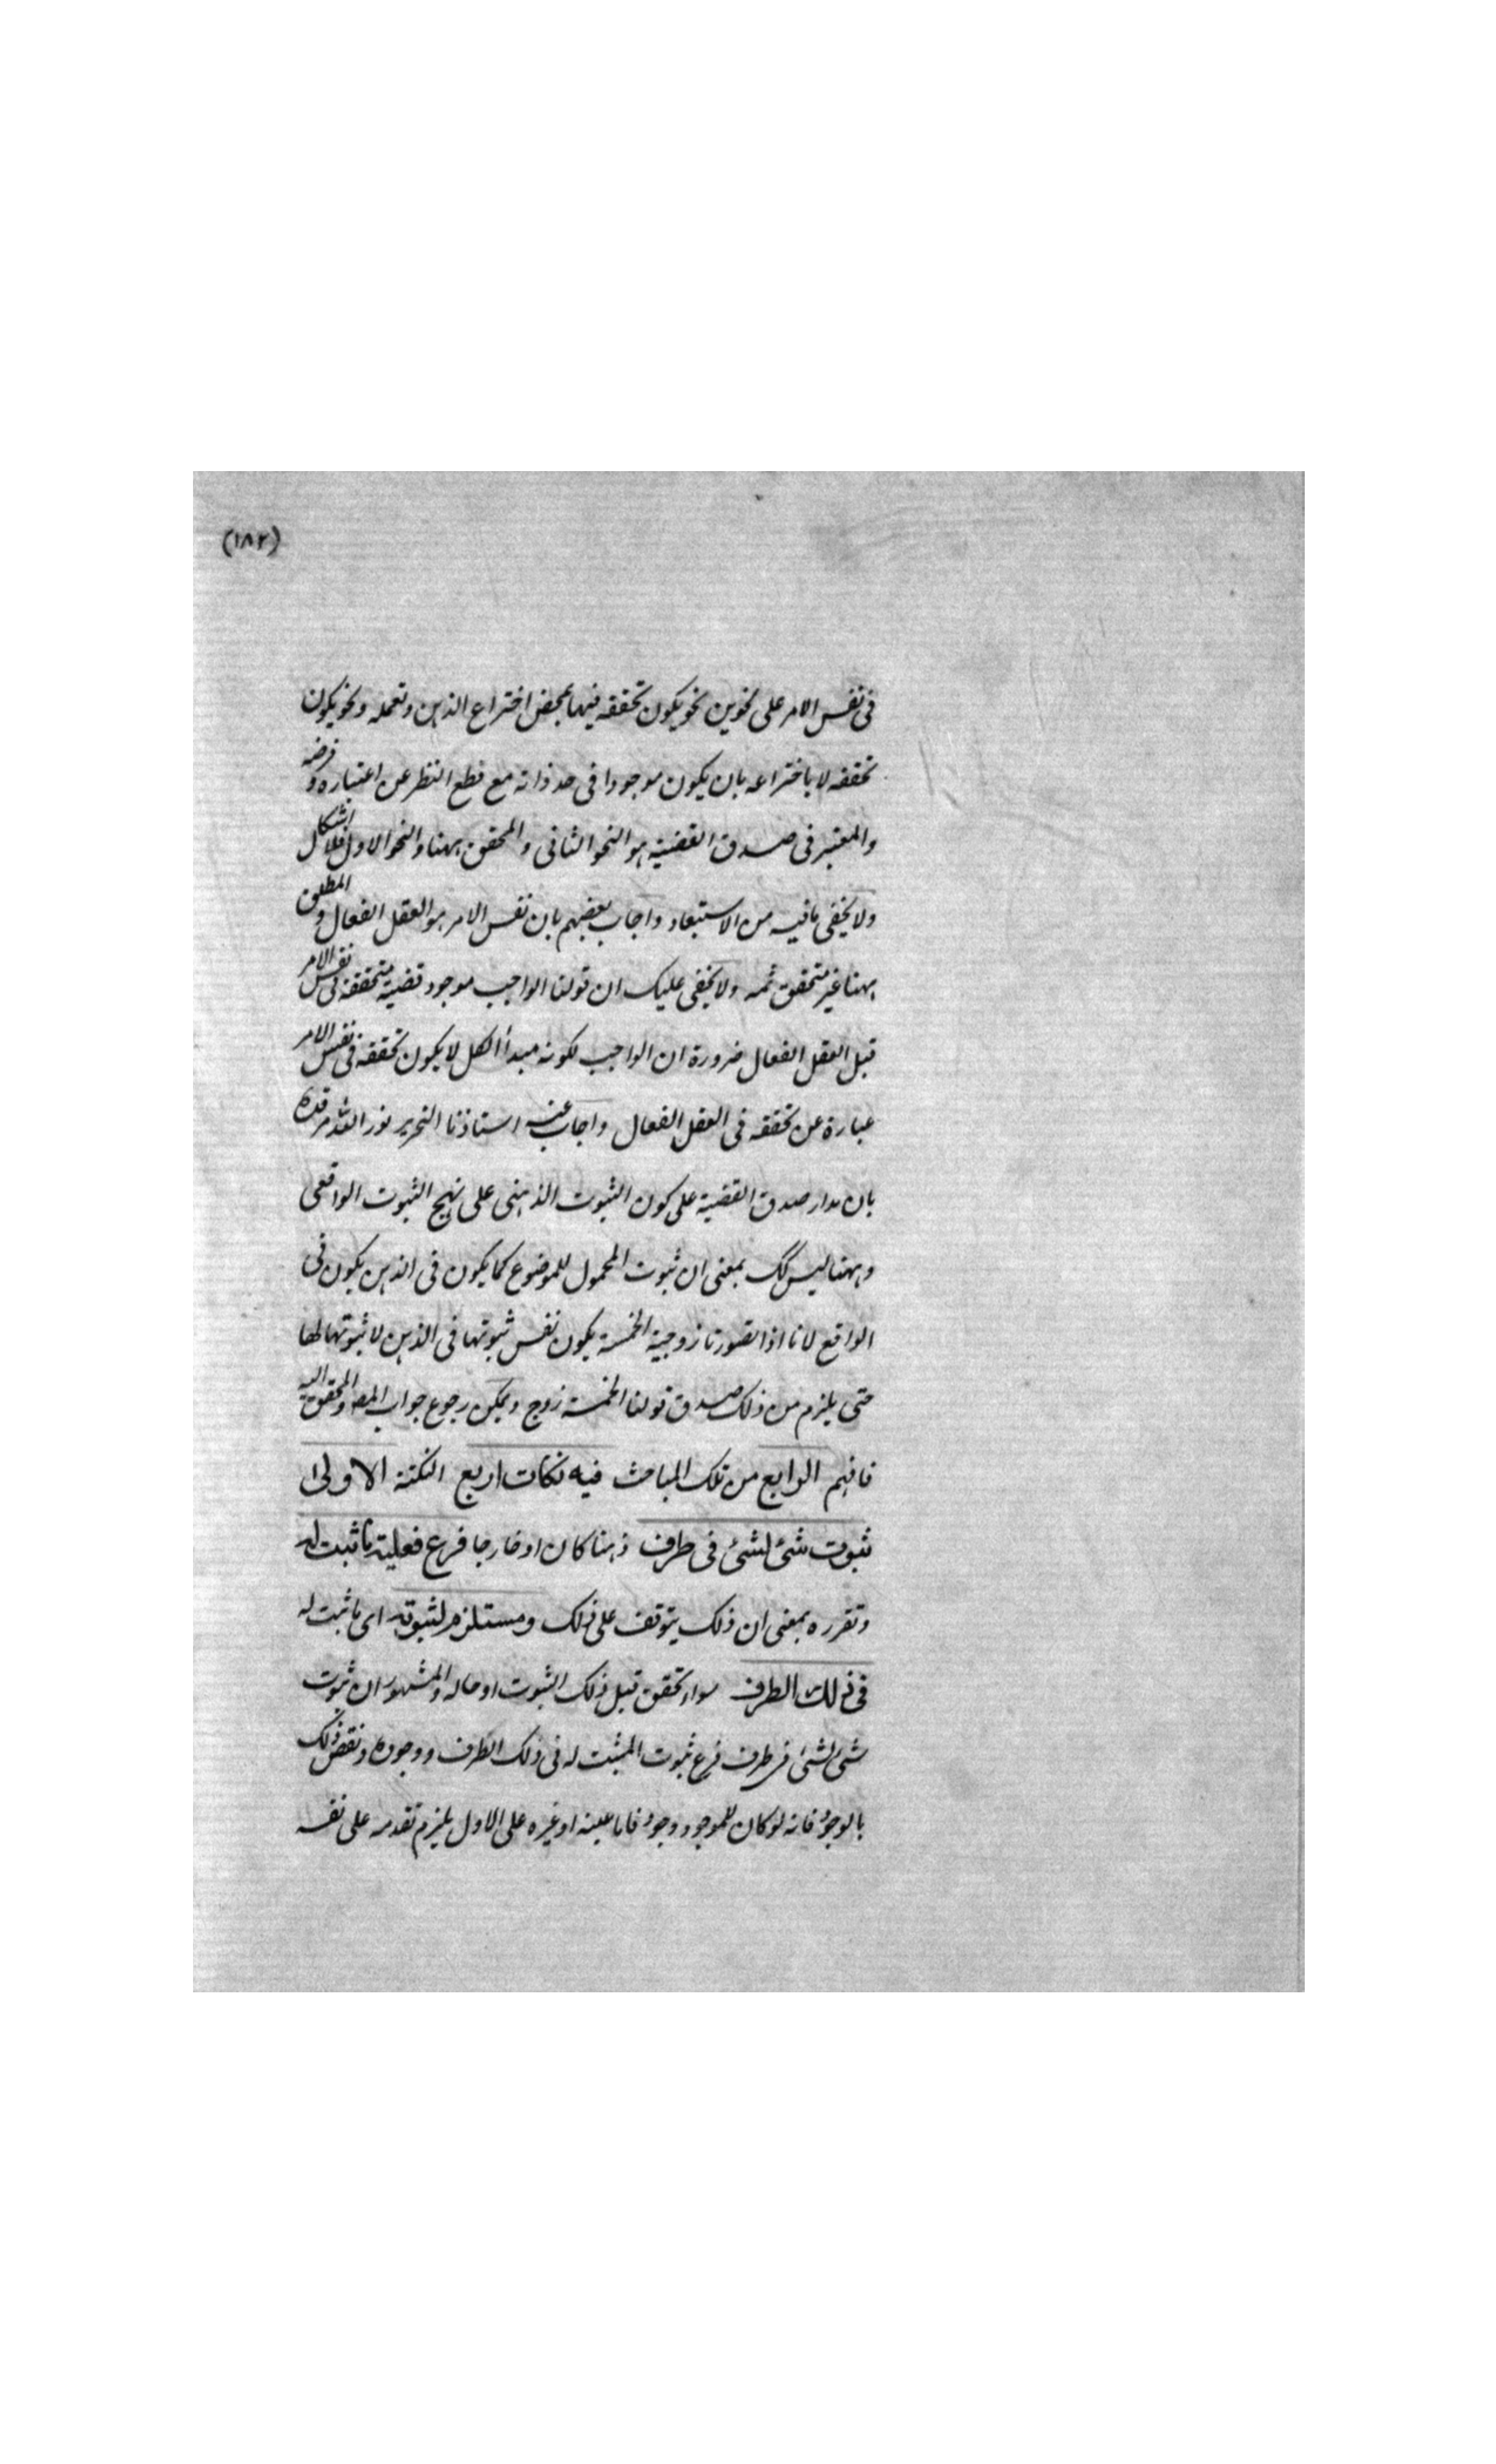 (١٨٢)
في نفس الامر على نحوين نحو يكون تحققه فيها بمحض اختراع الذهن وتعمله ونحو يكون
تحققه لا باختراعه بان يكون موجودا في حد ذاته مع قطع النظر عن اعتباره و فرضه
والمعتبر في صدق القضية هو النحو الثاني والمحقق ههنا والنحو الاول فلا اشكال
ولا يخفى ما فيه من الاستبعاد واجاب بعضهم بان نفس الامر هو العقل الفعال و المطلق
ههنا غير متحقق ثمه ولا يخفى عليك ان قولنا الواجب موجود قضية متحققة في نفس الامر
قبل العقل الفعال ضرورة ان الواجب لكونه مبدأ الكل لا يكون تحققه في نفس الامر
عبارة عن تحققه في العقل الفعال واجاب عنه استاذنا النحرير نور الله مرقده
بان مدار صدق القضية على كون الثبوت الذهني على نهج الثبوت الواقعي
وههنا ليس كك بمعنى ان ثبوت المحمول للموضوع كما يكون في الذهن يكون في
الواقع لانا اذا تصورنا زوجية الخمسة يكون نفس ثبوتها في الذهن لا ثبوتها لها
حتى يلزم من ذلك صدق قولنا الخمسة زوج ويمكن رجوع جواب المص والمحقق اليه
فافهم الرابع من تلك المباحث فيه نكات اربع النكتة الاولى
ثبوت شئ لشئ في ظرف ذهنا كان او خارجا فرع فعلية ما ثبت له
وتقرره بمعنى ان ذلك يتوقف على ذلك ومستلزم لثبوته اى ما ثبت له
في ذلك الظرف سواء تحقق قبل ذلك الثبوت او حاله والمشهور ان ثبوت
شئ لشئ في ظرف فرع ثبوت المثبت له في ذلك الظرف ووجوده ونقض ذلك
بالوجود فانه لو كان للموجود وجود فاما عينه او غيره على الاول يلزم تقدمه على نفسه